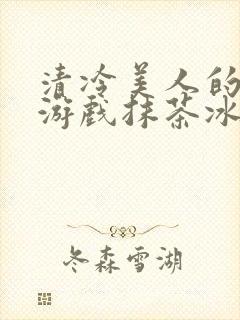 清冷美人的
游戏抹茶冰
冬森雪湖